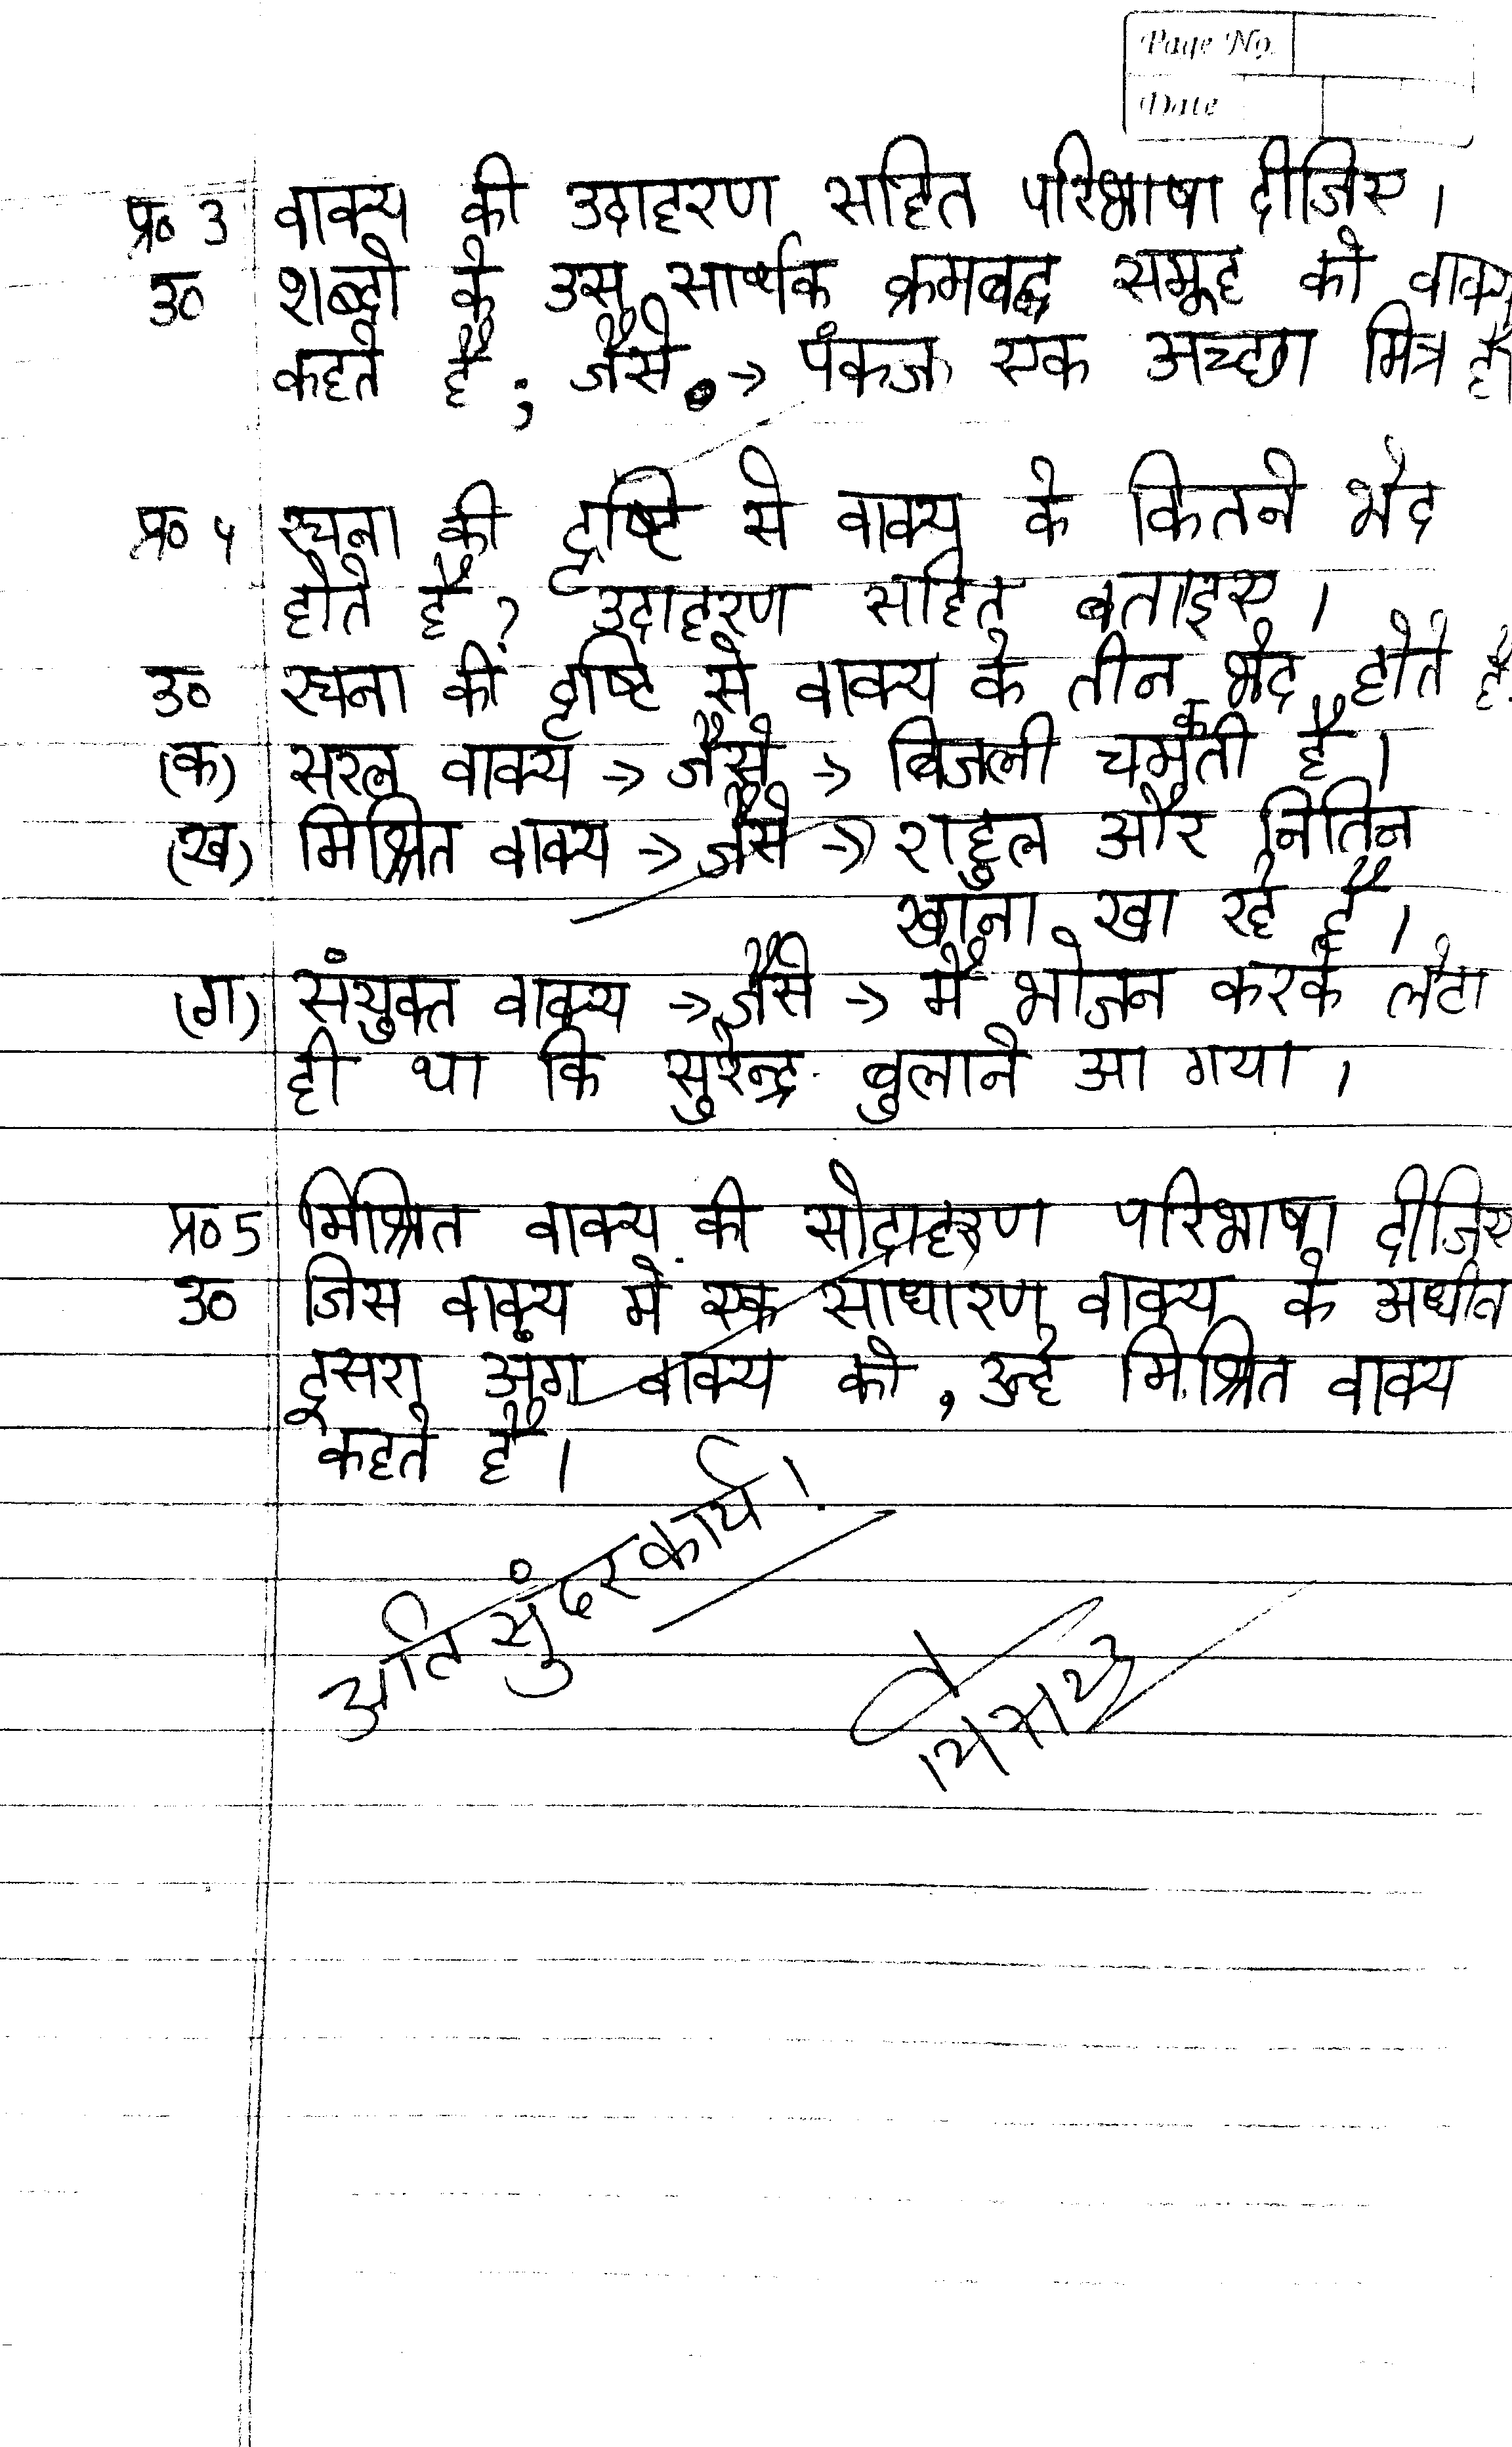 Page No.
Date
प्र० 3 वाक्य की उदाहरण सहित परिभाषा दीजिए।
उ० शब्दो के उस सार्थक क्रमबद्ध समूह को वाक्य
कहते हैं; जैसे -> पंकज एक अच्छा मित्र है
प्र० 4 रचना की दृष्टि से वाक्य के कितने भेद
होते हैं? उदाहरण सहित बताइए।
उ० रचना की दृष्टि से वाक्य के तीन भेद होते है
(क) सरल वाक्य -> जैसे -> बिजली चमकती है।
(ख) मिश्रित वाक्य -> जैसे -> राहुल और नितिन
खाना खा रहे हैं।
(ग) संयुक्त वाक्य -> जैसे -> मैं भोजन करके लेटा
ही था कि सुरेन्द्र बुलाने आ गया।
प्र० 5 मिश्रित वाक्य की सोदाहरण परिभाषा दीजिए
उ० जिस वाक्य मे एक साधारण वाक्य के अधीन
दूसरा अंग वाक्य को, उन्हे मिश्रित वाक्य
कहते हैं।
अति सुंदर कार्य!